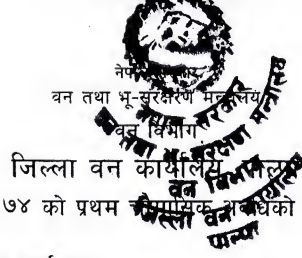 नेपाल सरकार
वन तथा भू-संरक्षण मन्त्रालय
वन विभाग
जिल्ला वन कार्यालय पाल्पा
७४ को प्रथम चौमासिक अवधिको
नेपाल सरकार
वन तथा भू-संरक्षण मन्त्रालय
वन विभाग
जिल्ला वन कार्यालय
पाल्पा